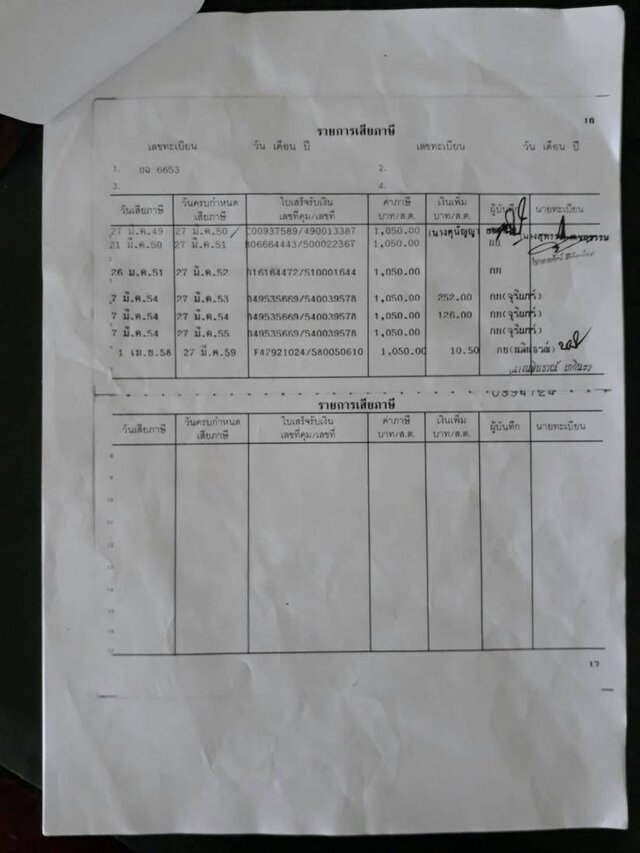 18
รายการเสียภาษี
เลขทะเบียน วัน เดือน ปี เลขทะเบียน วัน เดือน ปี
1. บฉ 6653 2.
3. 4.
วันเสียภาษี วันครบกำหนดเสียภาษี ใบเสร็จรับเงินเลขที่คุม/เลขที่ ค่าภาษีบาท/ส.ต. เงินเพิ่มบาท/ส.ต. ผู้บันทึก นายทะเบียน
27 มี.ค.49 27 มี.ค.50 00937589/490013387 1,050.00
21 มี.ค.50 27 มี.ค.51 06664443/500022367 1,050.00 กก
26 กพ.51 27 มี.ค.52 16164472/510001644 1,050.00 กก
7 มี.ค.54 27 มี.ค.53 49535669/540039578 1,050.00 252.00 กก(จุรินทร์)
7 มี.ค.54 27 มี.ค.54 49535669/540039578 1,050.00 126.00 กก(จุรินทร์)
7 มี.ค.54 27 มี.ค.55 49535669/540039578 1,050.00 กก(จุรินทร์)
1 เม.ย.58 27 มี.ค.59 F47921024/580050610 1,050.00 10.50
0394724
รายการเสียภาษี
วันเสียภาษี วันครบกำหนดเสียภาษี ใบเสร็จรับเงินเลขที่คุม/เลขที่ ค่าภาษีบาท/ส.ต. เงินเพิ่มบาท/ส.ต. ผู้บันทึก นายทะเบียน
17